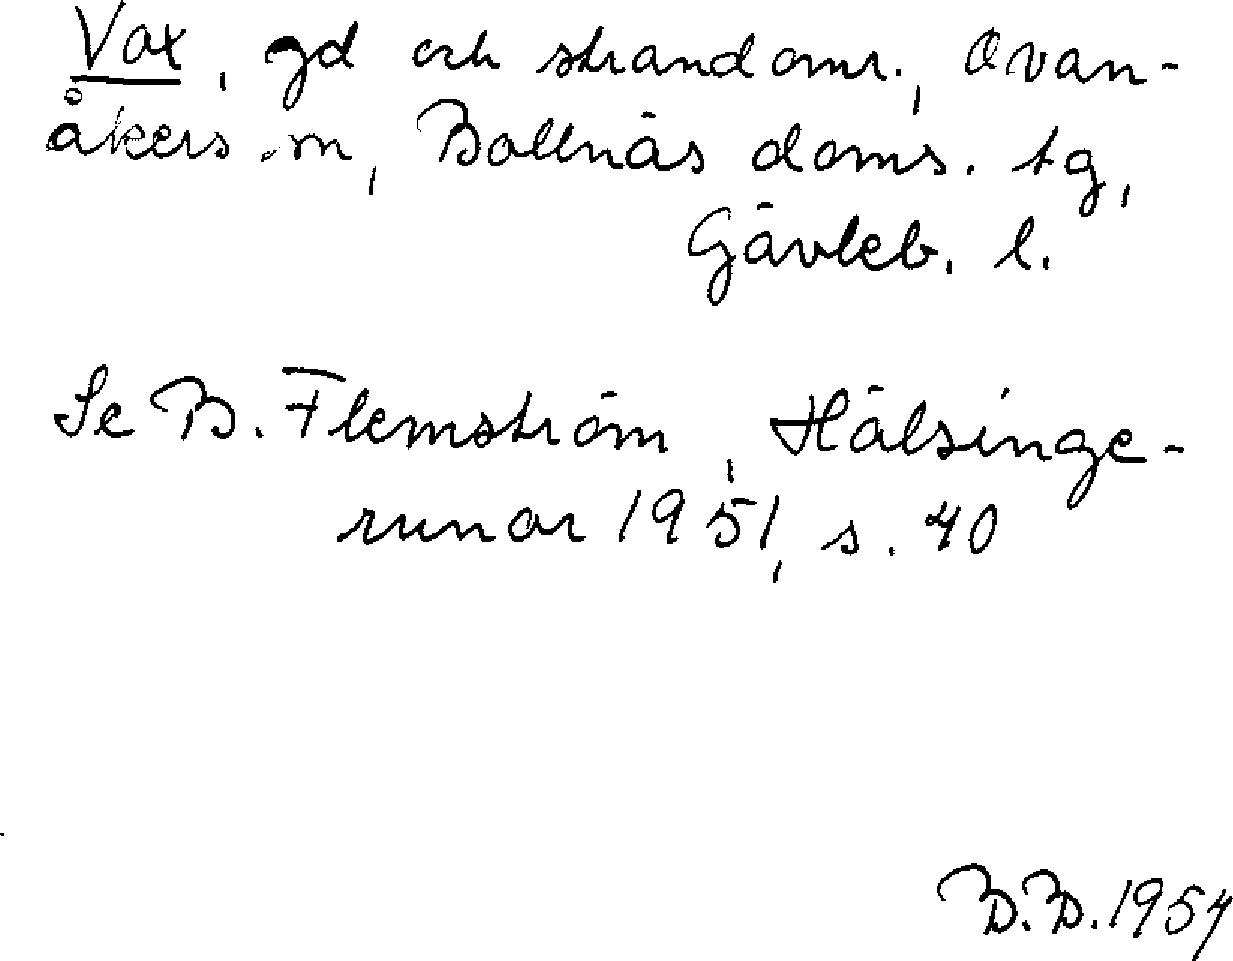 Vax, gd och strandomr., Ovan-
åkers sn, Bollnäs doms. tg,
Gävleb. l.
Se B. Flemström, Hälsinge-
runor 1951, s. 40
B.B. 1954